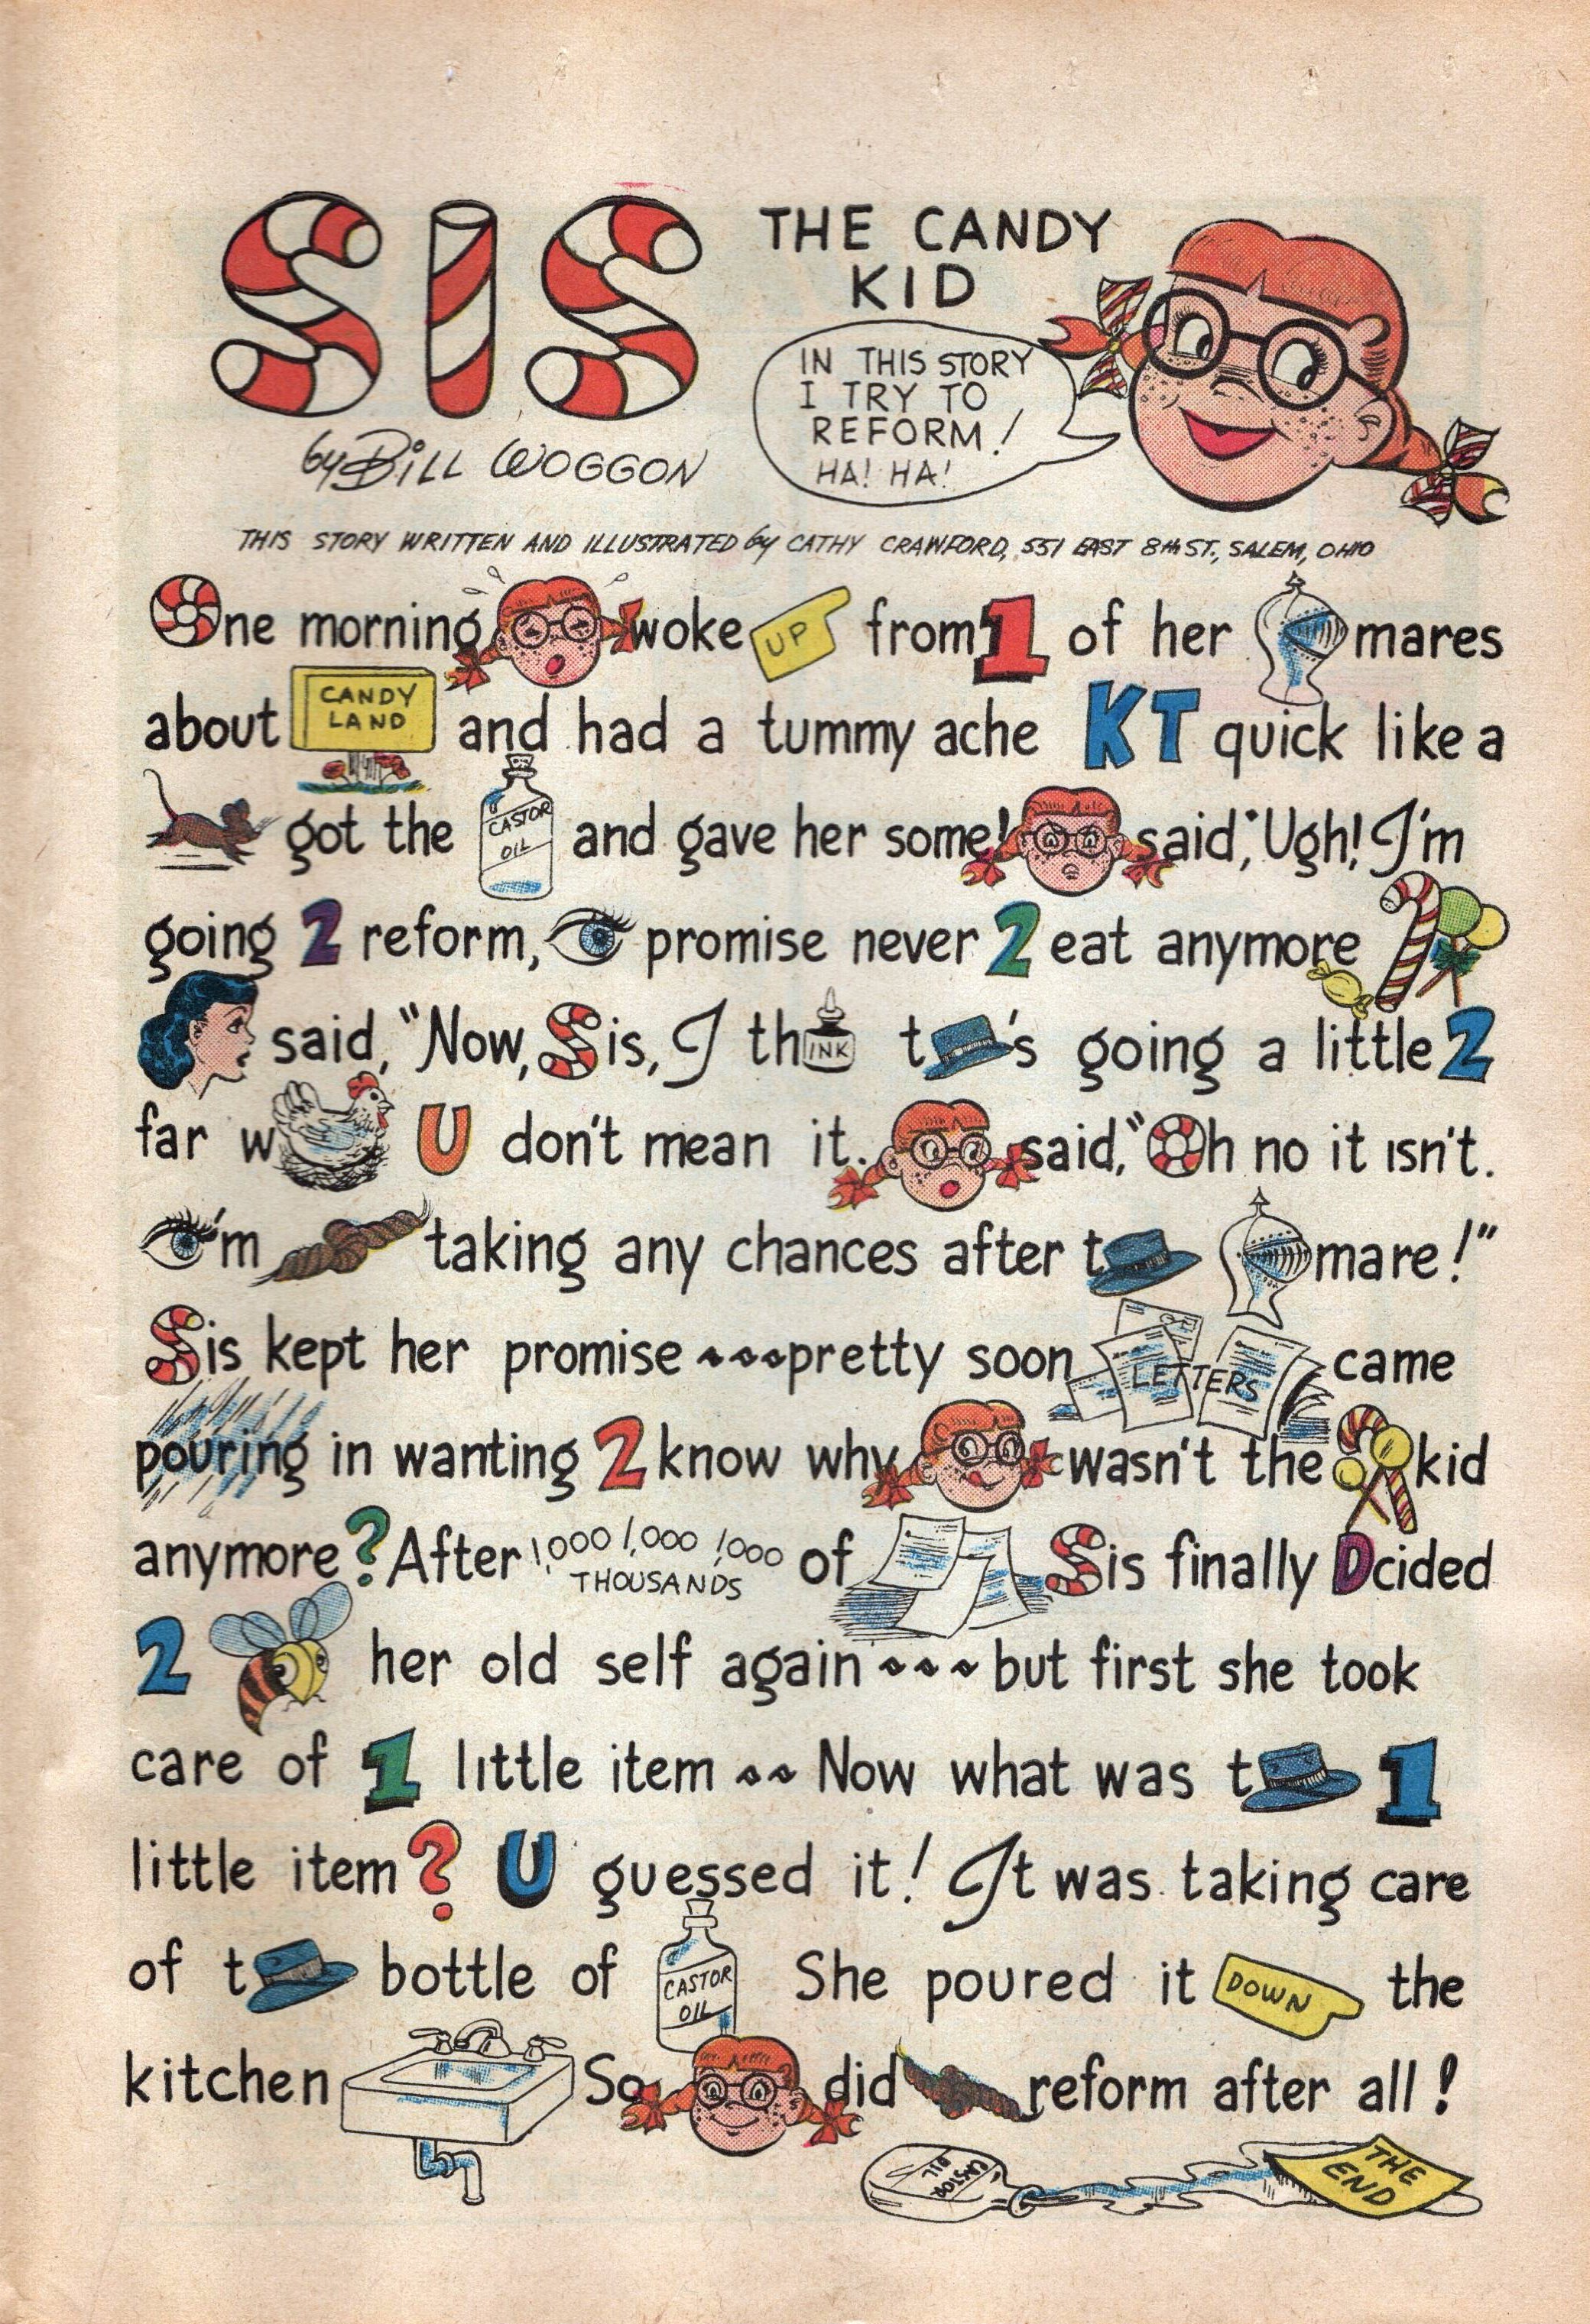 SIS
THE CANDY
KID
by Bill Woggon
IN THIS STORY
I TRY TO
REFORM!
HA! HA!
THIS STORY WRITTEN AND ILLUSTRATED by CATHY CRAWFORD, 551 EAST 8th ST., SALEM, OHIO
One morning woke UP from 1 of her mares
about CANDY LAND and had a tummy ache KT quick like a
got the CASTOR OIL and gave her some! said, "Ugh! I'm
going 2 reform, promise never 2 eat anymore
said, "Now, Sis, I th INK t 's going a little 2
far w U don't mean it. said, "Oh no it isn't.
'm taking any chances after t mare!"
Sis kept her promise pretty soon LETTERS came
pouring in wanting 2 know why wasn't the kid
anymore? After 1,000 1,000 1,000 THOUSANDS of Sis finally Dcided
2 her old self again but first she took
care of 1 little item Now what was t 1
little item? U guessed it! It was taking care
of t bottle of CASTOR OIL She poured it DOWN the
kitchen So did reform after all!
CASTOR OIL
THE END